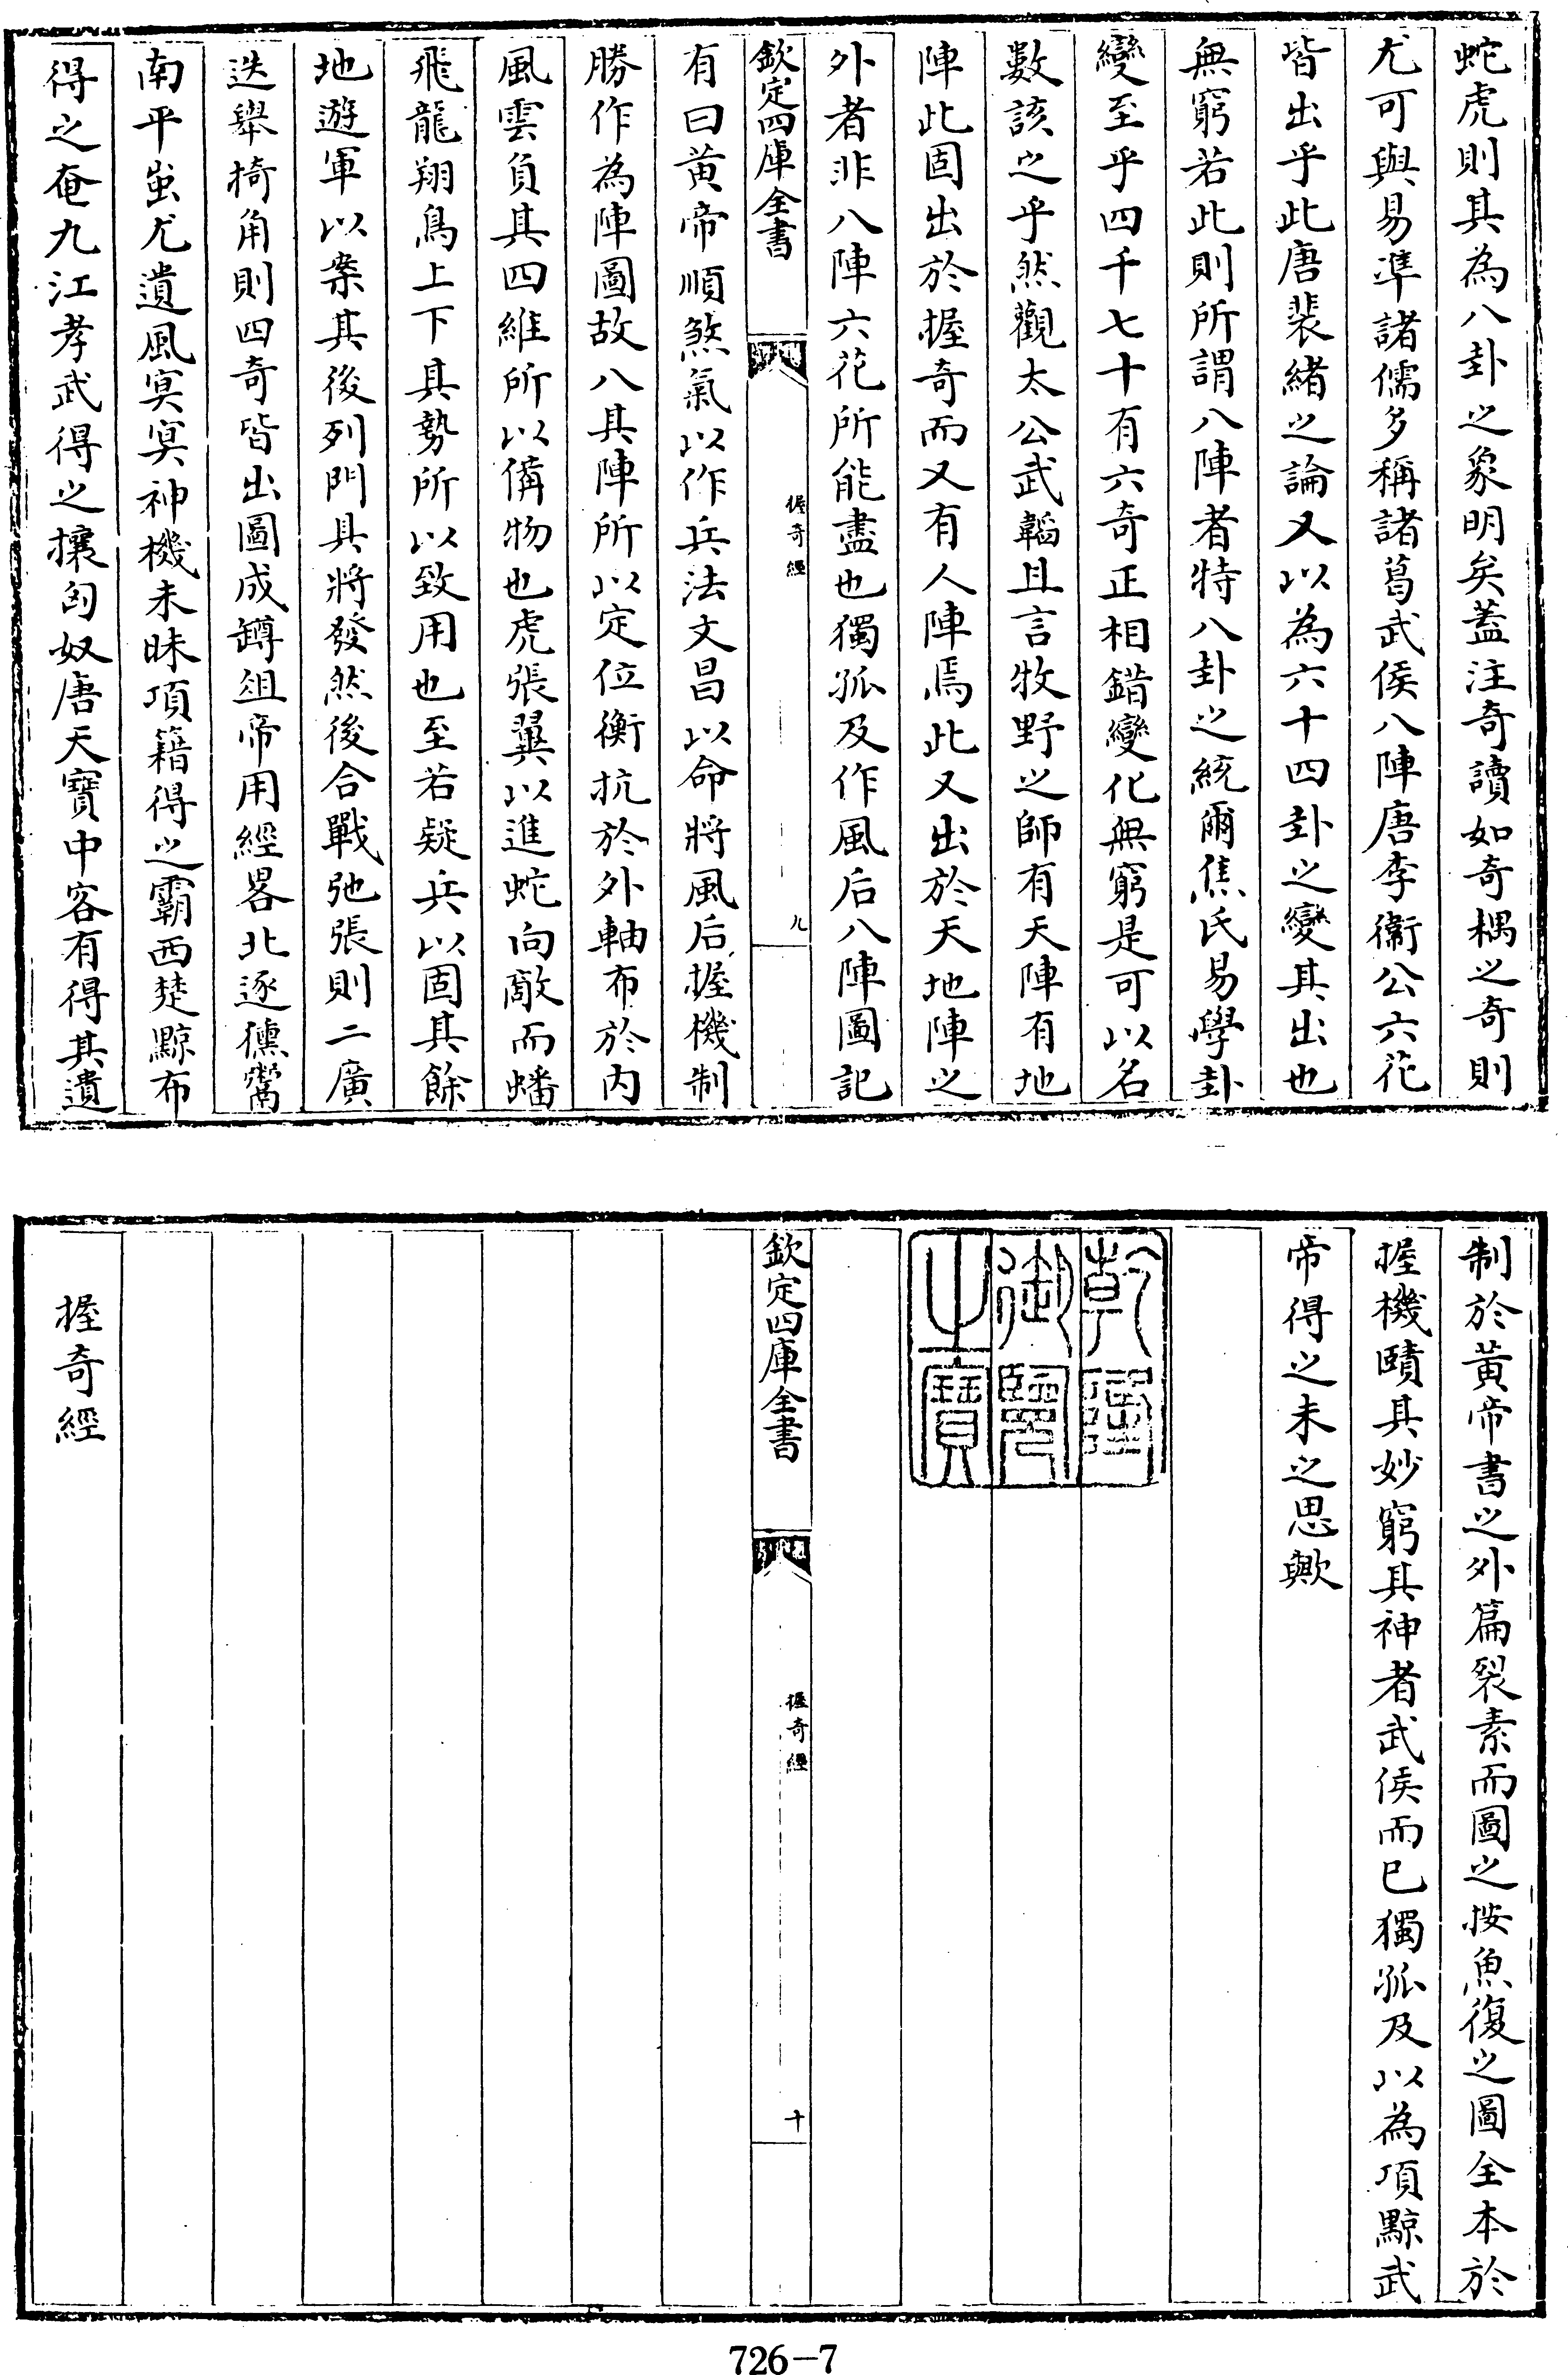 蛇虎則其為八卦之象明矣蓋注奇讀如奇耦之奇則
尤可與易準諸儒多稱諸葛武侯八陣唐李衛公六花
皆出乎此唐裴緒之論又以為六十四卦之變其出也
無窮若此則所謂八陣者特八卦之統爾焦氏易學卦
變至乎四千七十有六奇正相錯變化無窮是可以名
數該之乎然觀太公武韜且言牧野之師有天陣有地
陣此固出於握奇而又有人陣焉此又出於天地陣之
外者非八陣六花所能盡也獨孤及作風后八陣圖記
欽定四庫全書
握奇經
九
有曰黃帝順煞氣以作兵法文昌以命將風后握機制
勝作為陣圖故八其陣所以定位衡抗於外軸布於內
風雲負其四維所以備物也虎張翼以進蛇向敵而蟠
飛龍翔鳥上下其勢所以致用也至若疑兵以固其餘
地遊軍以案其後列門具將發然後合戰弛張則二廣
迭舉掎角則四奇皆出圖成罇俎帝用經畧北逐獯鬻
南平蚩尤遺風冥冥神機未昧項籍得之霸西楚黥布
得之奄九江孝武得之攘匈奴唐天寶中客有得其遺
制於黃帝書之外篇裂素而圖之按魚復之圖全本於
握機賾其妙窮其神者武侯而已獨孤及以為項黥武
帝得之未之思歟
乾隆
御覽
之寶
欽定四庫全書
握奇經
十
握奇經
726-7